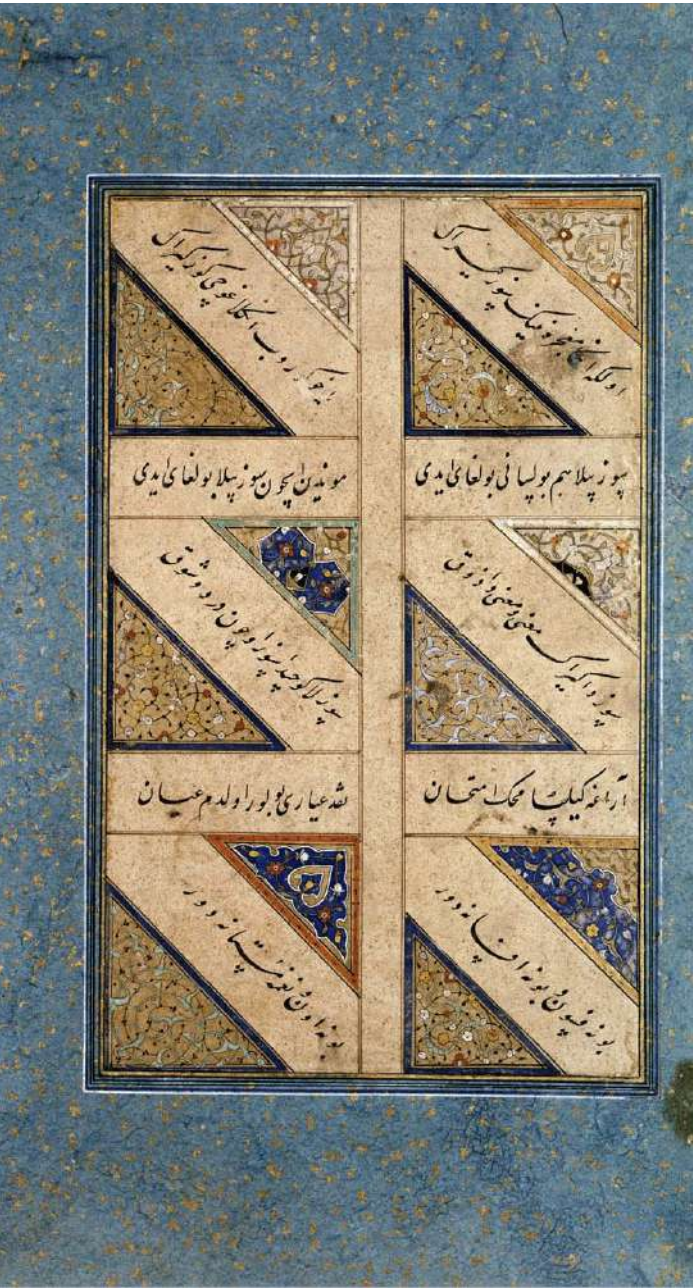 اولکه انکا معجزه دیک سوز کیراک
یا خود انکلاغوچی کوز کیراک
سوز بیلا هم بولسا نی بولغای ایدی
موندین اچون سوز بیلا بولغای ایدی
سوز دا کیراک معنی و معنی دا ذوق
سوزلاکوچیدا سوز اوچون درد و شوق
آراغه کیلسا محک امتحان
نقد عیاری بولور اول دم عیان
بو نه فسون و بو نه افسانه دور
بو نه اون و نغمه مستانه دور